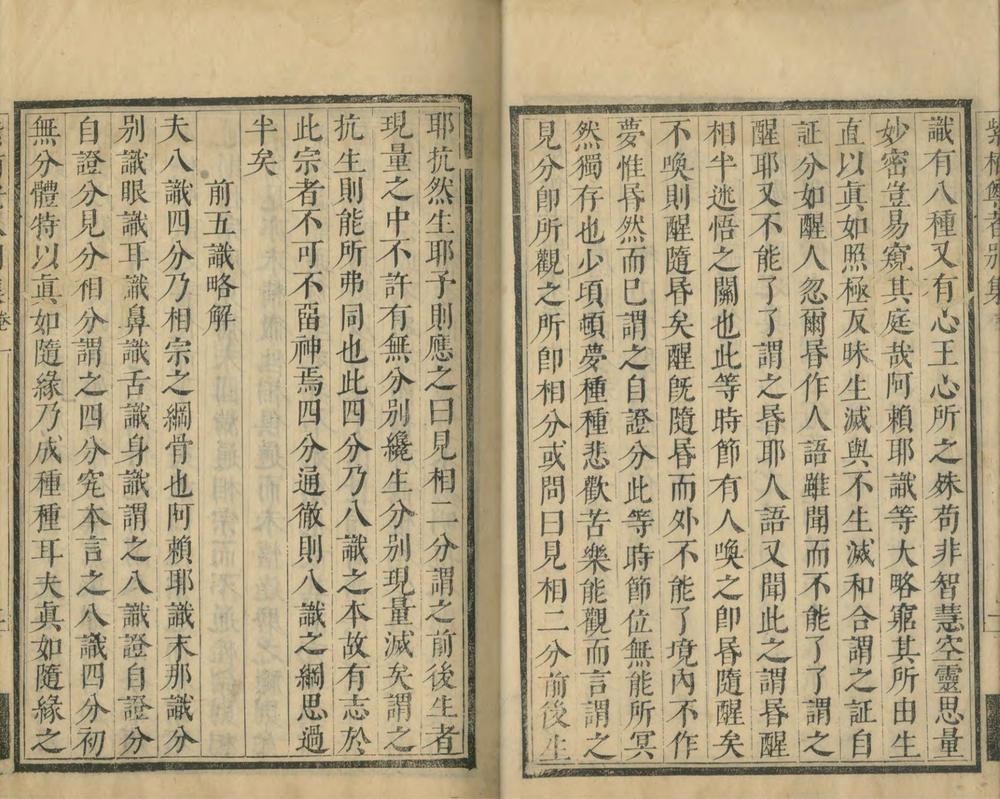 識有八種又有心王心所之殊苟非智慧空靈思量
妙密豈易窺其庭哉阿賴耶識等大略窮其所由生
直以眞如照極反昧生滅與不生滅和合謂之証自
証分如醒人忽爾昏作人語雖聞而不能了了謂之
醒耶又不能了了謂之昏耶人語又聞此之謂昏醒
相半迷悟之關也此等時節有人喚之卽昏隨醒矣
不喚則醒隨昏矣醒旣隨昏而外不能了境內不作
夢惟昏然而已謂之自證分此等時節位無能所冥
然獨存也少頃頓夢種種悲歡苦樂能觀而言謂之
見分卽所觀之所卽相分或問曰見相二分前後生
耶抗然生耶予則應之曰見相二分謂之前後生者
現量之中不許有無分别纔生分别現量滅矣謂之
抗生則能所弗同也此四分乃八識之本故有志於
此宗者不可不留神焉四分通徹則八識之綱思過
半矣
前五識略解
夫八識四分乃相宗之綱骨也阿賴耶識末那識分
别識眼識耳識鼻識舌識身識謂之八識證自證分
自證分見分相分謂之四分究本言之八識四分初
無分體特以眞如隨緣乃成種種耳夫眞如隨緣之